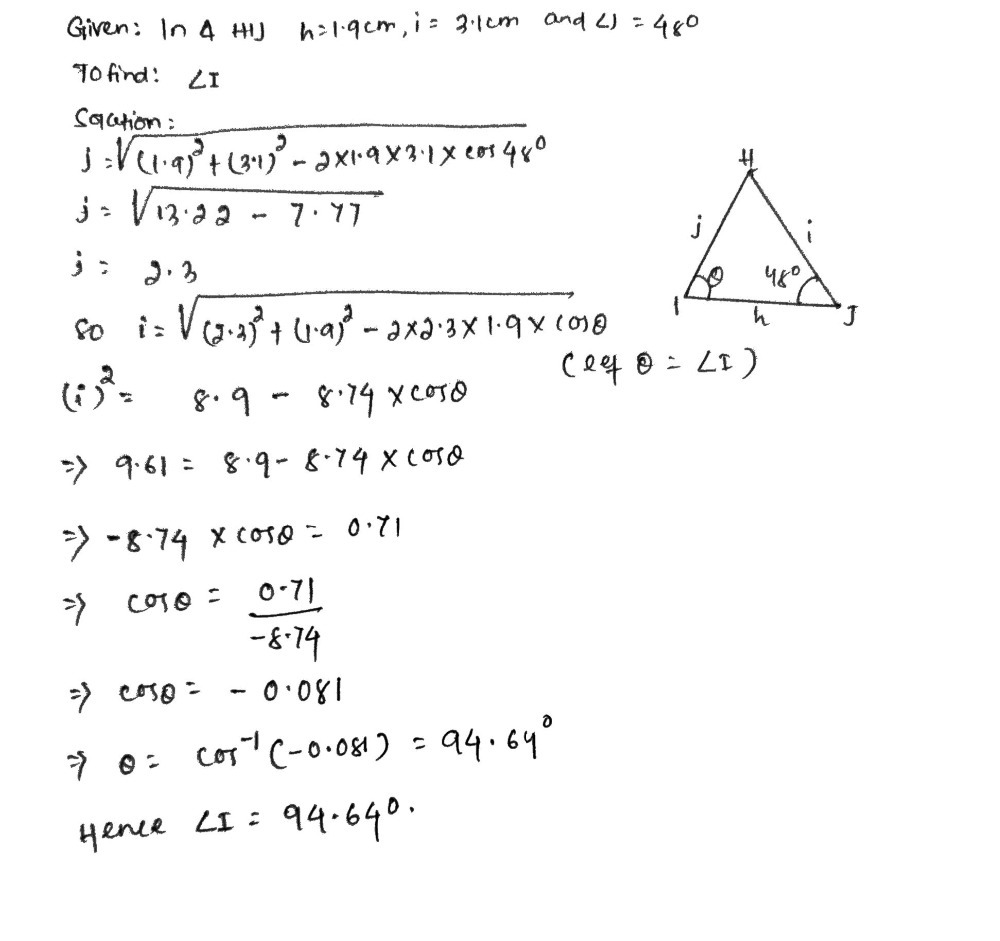 Given: In Δ HIJ h=1.9cm, i = 3.1cm and ∠J = 48°
To find: ∠I
Sqcution:
j = √(1.9)² + (3.1)² - 2×1.9×3.1× cos 48°
j = √13.22 - 7.77
j = 2.3
so i = √(2.3)² + (1.9)² - 2×2.3×1.9× cosθ
(let θ = ∠I)
(i)² = 8.9 - 8.74 × cosθ
=> 9.61 = 8.9 - 8.74 × cosθ
=> -8.74 × cosθ = 0.71
=> cosθ = 0.71 / -8.74
=> cosθ = - 0.081
=> θ = cos⁻¹ (-0.081) = 94.64°
Hence ∠I = 94.64°.
H
j
i
θ
48°
I
h
J